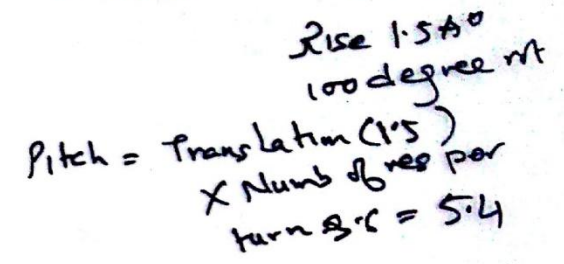 Rise 1.5A°
100 degree rot
Pitch = Translation (1.5)
X Numb of res per
turn 3.6 = 5.4